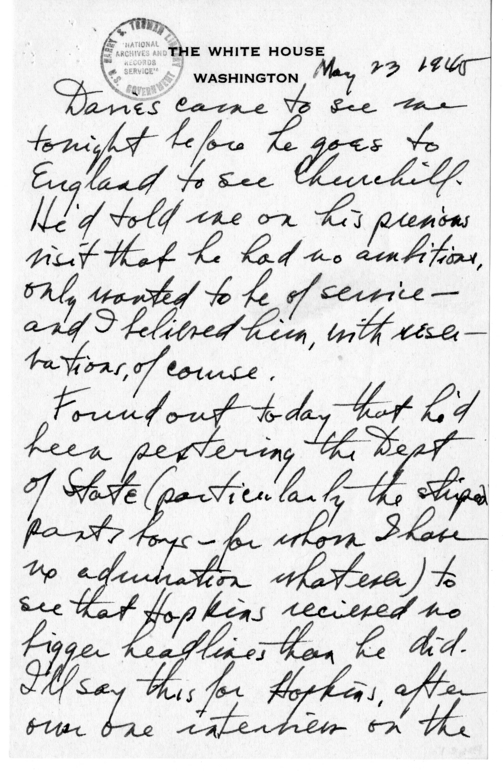 HARRY S. TRUMAN LIBRARY
"NATIONAL
ARCHIVES AND
RECORDS
SERVICE"
U.S. GOVERNMENT
THE WHITE HOUSE
WASHINGTON
May 23 1945
Davies came to see me
tonight before he goes to
England to see Churchill.
He'd told me on his previous
visit that he had no ambitions,
only wanted to be of service—
and I believed him, with reser-
vations, of course.
Found out today that he'd
been pestering the Dept
of State (particularly the striped
pants boys – for whom I have
no admiration whatever) to
see that Hopkins recieved no
bigger headlines than he did.
I'll say this for Hopkins, after
our one interview on the